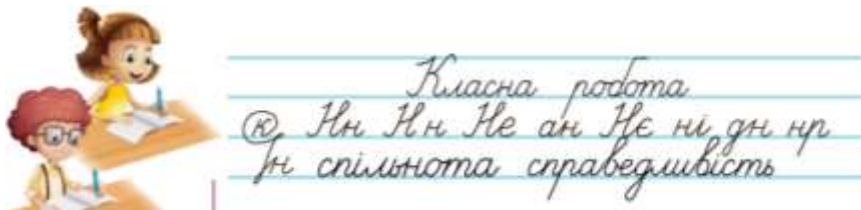 Класна робота
К Нн Нн Не ан Нє ні дн нр
Їн спільнота справедливість